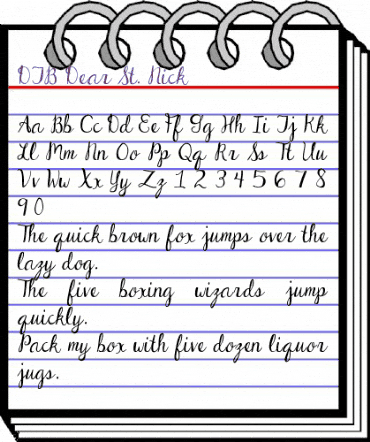 DJB Dear St. Nick
Aa Bb Cc Dd Ee Ff Gg Hh Ii Jj Kk
Ll Mm Nn Oo Pp Qq Rr Ss Tt Uu
Vv Ww Xx Yy Zz 1 2 3 4 5 6 7 8
9 0
The quick brown fox jumps over the
lazy dog.
The five boxing wizards jump
quickly.
Pack my box with five dozen liquor
jugs.